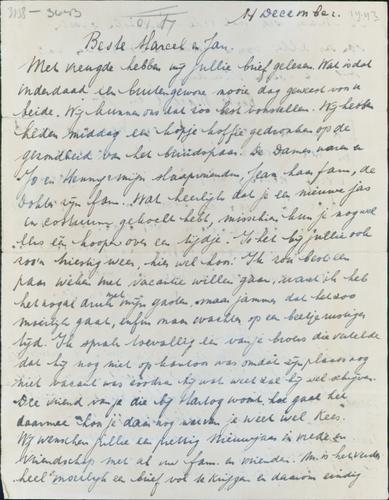 3138 - 3643
14 December. 1943
Beste Marcel en Jan.
Met vreugde hebben wij jullie brief gelesen. Wat is dat
inderdaad een buitengewone mooie dag geweest voor u
beide. Wij kunnen ons dat zoo best voorstellen. Wij hebben
heden middag een kopje koffie gedronken op de
gezondheid van het bruidspaar. De Dames waren
Jo en Henny mijn slaapvrienden, Jean haar fam, de
Dokter zijn fam. Wat heerlijk dat je een nieuwe jas
en costuum gekocht hebt, misschien kun je nog wel
een koopen over een tijdje. Is het bij jullie ook
zoo'n triestig weer, hier wel hoor. Ik zou best een
paar weken met vacantie willen gaan, want ik heb
het nogal druk met mijn gasten, maar jammer dat het zoo
moeilijk gaat, enfin maar wachten op een beetje rustiger
tijd. Ik sprak toevallig een van je broers die vertelde
dat hij nog niet op kantoor was omdat zijn plaats nog
niet vacant was zoodra hij wat weet zal hij wel schrijven.
Die vriend van je die bij Hartog woont hoe gaat het
daarmee kon je daar nog je weet wel Kees.
Wij wenschen jullie een prettig Nieuwjaar in vrede en
vriendschap met al uw fam. en vrienden. M. is het verder
heel moeilijk een brief vol te krijgen en daarom eindig